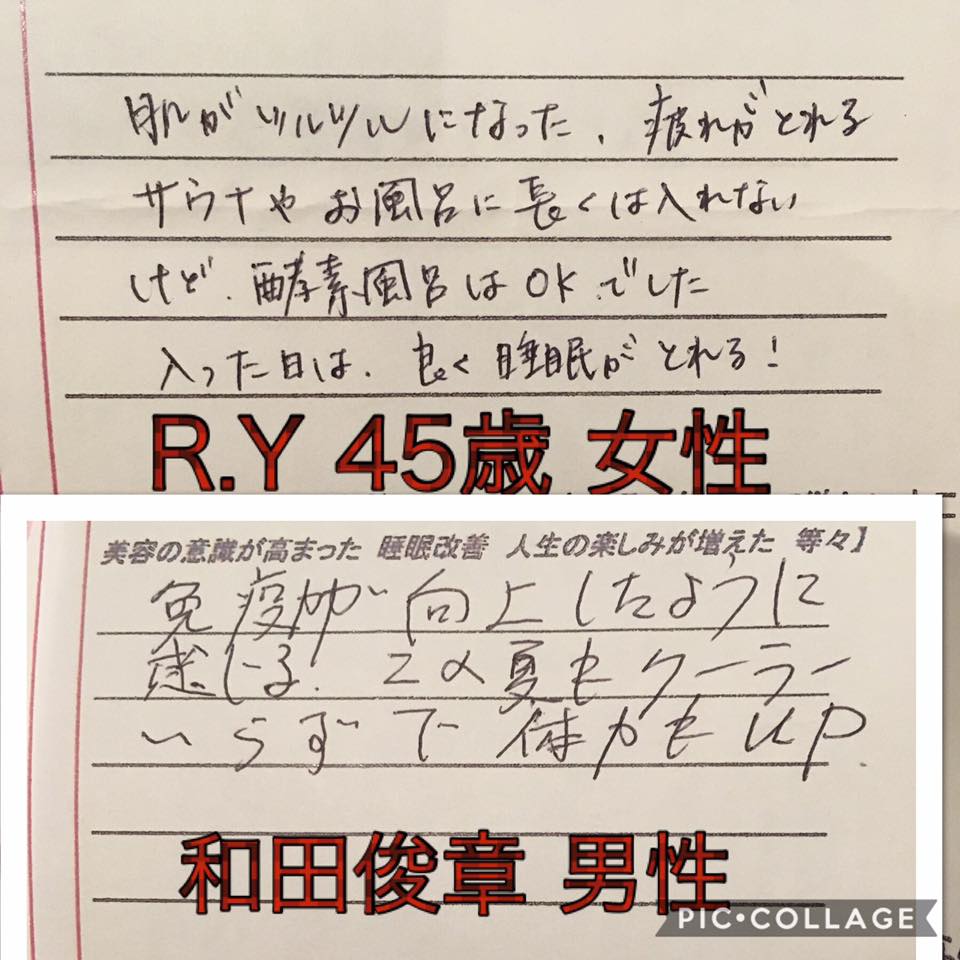 肌がツルツルになった、疲れがとれる
サウナやお風呂に長くは入れない
けど、酵素風呂はOK、でした
入った日は、良く睡眠がとれる!
R.Y 45歳 女性
美容の意識が高まった 睡眠改善 人生の楽しみが増えた 等々】
免疫力が向上したように
感じる。この夏もクーラー
いらずで体力もUP
和田俊章 男性
PIC•COLLAGE